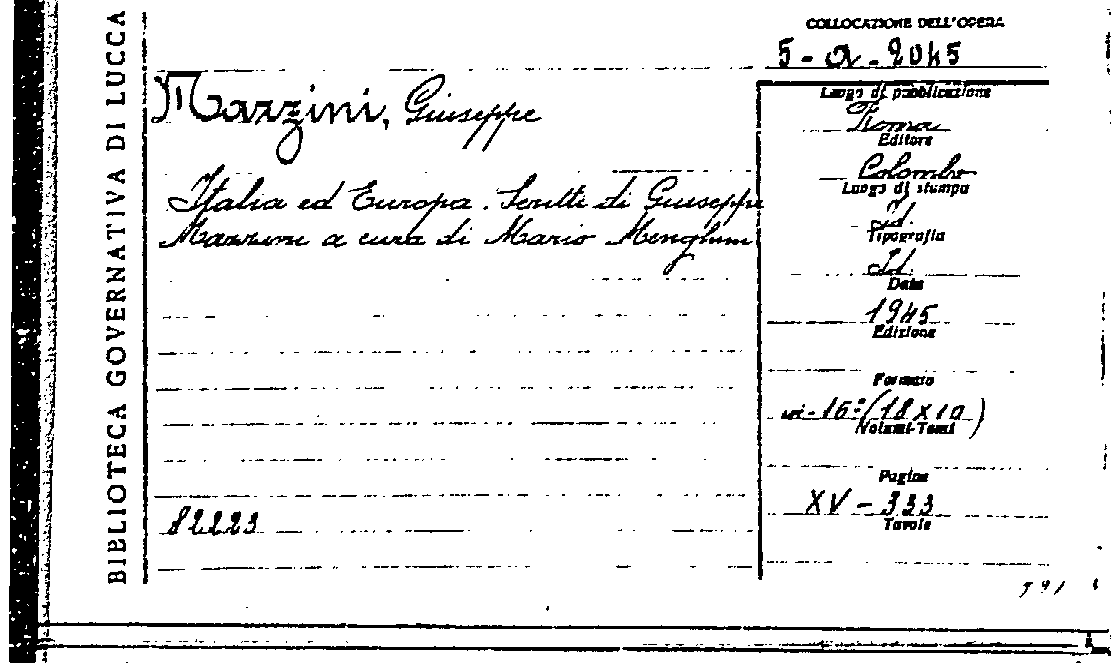 BIBLIOTECA GOVERNATIVA DI LUCCA
COLLOCAZIONE DELL'OPERA
5-a-2045
Mazzini, Giuseppe
Italia ed Europa. Scritti di Giuseppe
Mazzini a cura di Mario Menghini
82223
Luogo di pubblicazione
Roma
Editore
Colombo
Luogo di stampa
Id.
Tipografia
Id.
Data
1945
Edizione
Formato
in-16º (18x10)
Volumi-Tomi
Pagine
XV-333
Tavole